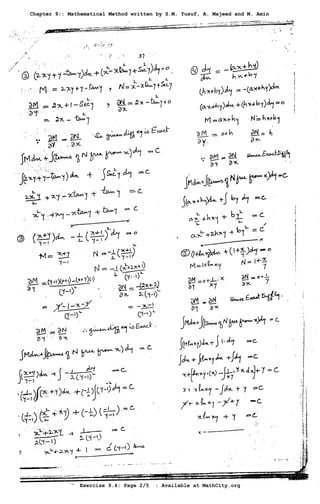 Chapter 9:: Mathematical Method written by S.M. Yusuf, A. Majeed and M. Amin
37
② (2xy+y-tany)dx + (x²-xtan²y+Sec²y)dy=0
M = 2xy+y-tany , N = x²-xtan²y+Sec²y
∂M/∂y = 2x+1-Sec²y , ∂N/∂x = 2x-tan²y+0
= 2x - tan²y
∵ ∂M/∂y = ∂N/∂x So given diff eq is Exact
∫Mdx + ∫(terms of N free from x)dy = C
∫(2xy+y-tany)dx + ∫Sec²y dy = C
2x²y/2 + xy - xtany + tany = C
x²y + xy - xtany + tany = C
③ (x+y/y-1)dx - ½(x+1/y-1)²dy = 0
M = x+y/y-1 N = -½(x+1/y-1)²
N = -½(x²+2x+1)/(y-1)²
∂M/∂y = (y-1)(0+1)-(x+y)(1)/(y-1)² ∂N/∂x = -(2x+2)/2(y-1)²
= y-1-x-y/(y-1)² = -x-1/(y-1)²
∂M/∂y = ∂N/∂x ∴ given diff eq is Exact.
∫Mdx + ∫(terms of N free from x)dy = C
∫(x+y)/y-1 dx + ∫-dy/2(y-1)² = C
(1/y-1)∫(x+y)dx + (-½)∫(y-1)⁻²dy = C
(1/y-1)(x²/2 + xy) + (-½)(y-1)⁻¹/-1 = C
x²+2xy/2(y-1) + 1/2(y-1) = C
x²+2xy+1 = C'(y-1) Ans
④ dy/dx = -(ax+hy)/hx+by
(hx+by)dy = -(ax+hy)dx
(ax+hy)dx + (hx+by)dy = 0
M = ax+hy N = hx+by
∂M/∂y = 0+h ∂N/∂x = h
∵ ∂M/∂y = ∂N/∂x Hence Exact diff eq
∫Mdx + ∫(terms of N free from x)dy = C
∫(ax+hy)dx + ∫by dy = C
ax²/2 + hxy + by²/2 = C
ax²+2hxy+by² = C'
⑤ (1+lnxy)dx + (1+x/y)dy = 0
M = 1+lnxy N = 1+x/y
∂M/∂y = 0+1/xy · x ∂N/∂x = 0+1/y
∂M/∂y = ∂N/∂x Hence Exact diff eq.
∫Mdx + ∫(terms of N free from x)dy = C
∫(1+lnxy)dx + ∫1·dy = C
∫dx + ∫lnxy dx + ∫dy = C
x+[lnxy·(x) - ∫1/xy · y·x dx] + y = C
x + xlnxy - ∫dx + y = C
x + xlnxy - x + y = C
xlnxy + y = C
Exercise 9.4: Page 2/5 : Available at MathCity.org